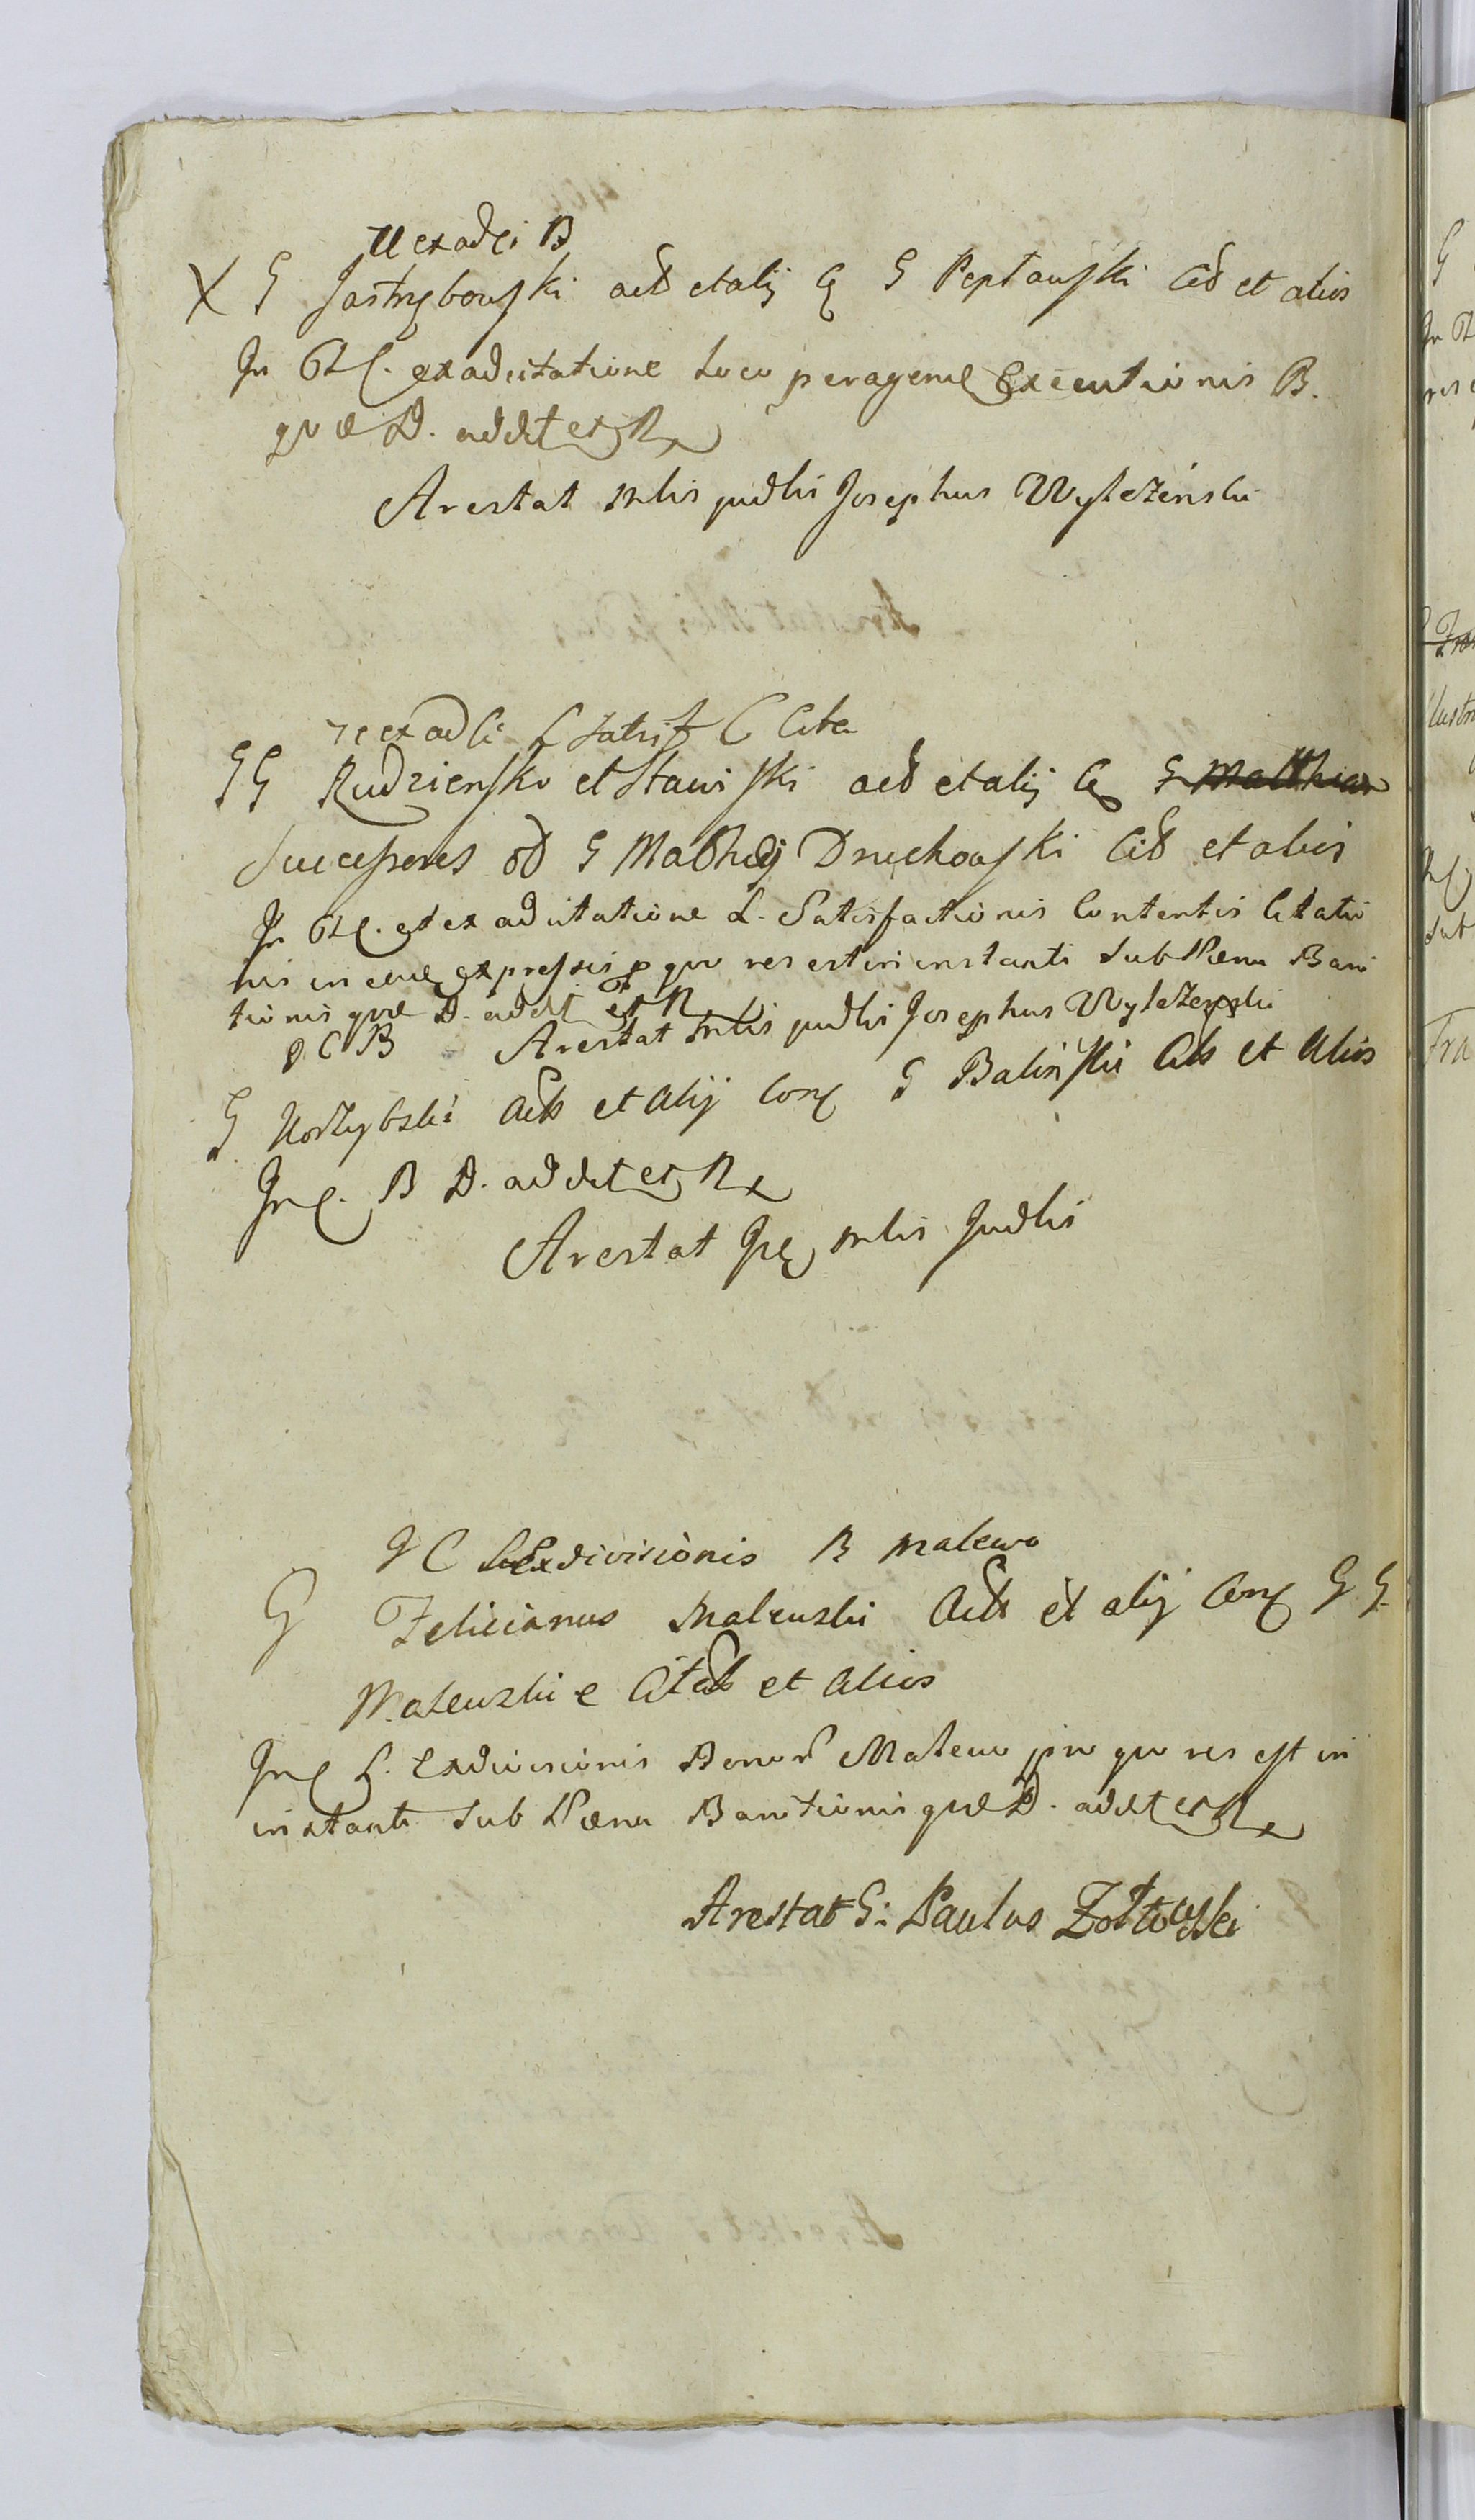 et ex adci B
X G Jastrzębowski act et alij C G Peptowski Cit et alios
In Tt C. ex adcitatione Loco peragenda Executionis B.
qvæ D. addet et R
Arestat Mlis judlis Josephus Wyleżinski
et ex ad Ci L Satisf C Cita
GG Rudziensko et Stawiski act et alij C G Matthias
Successores od G Mathæj Druchowski Cit et alios
In Tt C. et ex adcitatione L. Satisfactionis Contentis Citatio
nis in eaque expressis p quo res est in instanti Sub Pæna Bani
tionis qvæ D. addet et R
Arestat Mlis judlis Josephus Wyleżenski
P C B
G Korzybski Act et Alij Con G Balinski Cit et Alios
In C. B D. addet et R
Arestat Mlis Judlis
P C Exdivisionis B Malewo
G Felicianus Malewski Act et alij Con G G.
Malewskie Citat et Alios
In C L. Exdivisionis Bonor Malewo pro quo res est in
instanti Sub Pæna Banitionis qvæ D. addet et R
Arestat G: Paulus Zołtowski